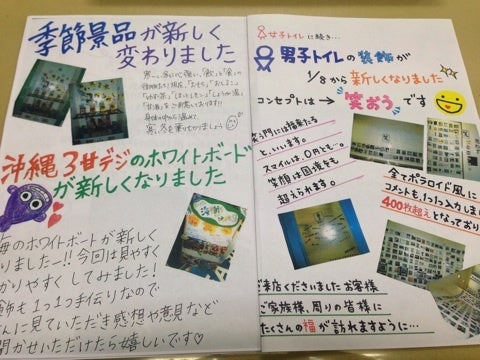 季節景品が新しく
変わりました
身体の中から温めて、
寒い冬を乗りきりましょう
沖縄3廿デジのホワイトボード
が新しくなりました
毎のホワイトボードが新しく
りました!!今回は見やすく
かりやすくしてみました!
飾も1つ1つ手作りなので
んに見ていただき感想や意見など
聞かせいただけたら嬉しいです♡
女子トイレに続き…
男子トイレの装飾が
1/8から新しくなりました
コンセプトは→笑おうです
笑う門には福来たる
といいます。
スマイルは、0円でも…
笑顔は国境をも
超えられます。
全てポラロイド風に
コメントも、1つ1つ入力しま
400枚超えとなっており
ご来店くださいましたお客様
ご家族様、周りの皆様に
たくさんの福が訪れますように…